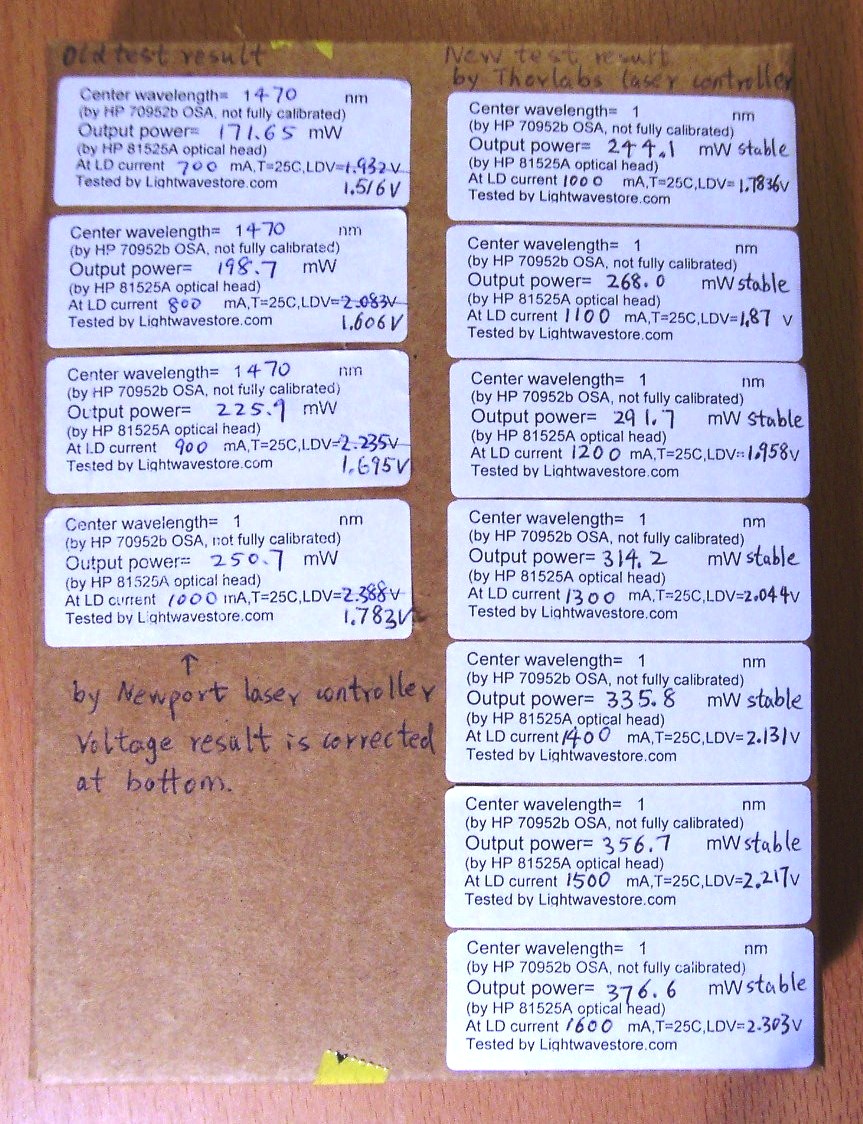 Old test result
Center wavelength= 1470 nm
(by HP 70952b OSA, not fully calibrated)
Output power= 171.65 mW
(by HP 81525A optical head)
At LD current 700 mA,T=25C,LDV=1.932V
Tested by Lightwavestore.com
1.516V
Center wavelength= 1470 nm
(by HP 70952b OSA, not fully calibrated)
Output power= 198.7 mW
(by HP 81525A optical head)
At LD current 800 mA,T=25C,LDV=2.083V
Tested by Lightwavestore.com
1.606V
Center wavelength= 1470 nm
(by HP 70952b OSA, not fully calibrated)
Output power= 225.9 mW
(by HP 81525A optical head)
At LD current 900 mA,T=25C,LDV=2.235V
Tested by Lightwavestore.com
1.695V
Center wavelength= 1 nm
(by HP 70952b OSA, not fully calibrated)
Output power= 250.7 mW
(by HP 81525A optical head)
At LD current 1000 mA,T=25C,LDV=2.388V
Tested by Lightwavestore.com
1.783V
↑
by Newport laser controller
Voltage result is corrected
at bottom.
New test result
by Thorlabs laser controller
Center wavelength= 1 nm
(by HP 70952b OSA, not fully calibrated)
Output power= 244.1 mW stable
(by HP 81525A optical head)
At LD current 1000 mA,T=25C,LDV=1.7836V
Tested by Lightwavestore.com
Center wavelength= 1 nm
(by HP 70952b OSA, not fully calibrated)
Output power= 268.0 mW stable
(by HP 81525A optical head)
At LD current 1100 mA,T=25C,LDV=1.87 V
Tested by Lightwavestore.com
Center wavelength= 1 nm
(by HP 70952b OSA, not fully calibrated)
Output power= 291.7 mW stable
(by HP 81525A optical head)
At LD current 1200 mA,T=25C,LDV=1.958V
Tested by Lightwavestore.com
Center wavelength= 1 nm
(by HP 70952b OSA, not fully calibrated)
Output power= 314.2 mW stable
(by HP 81525A optical head)
At LD current 1300 mA,T=25C,LDV=2.044V
Tested by Lightwavestore.com
Center wavelength= 1 nm
(by HP 70952b OSA, not fully calibrated)
Output power= 335.8 mW stable
(by HP 81525A optical head)
At LD current 1400 mA,T=25C,LDV=2.131V
Tested by Lightwavestore.com
Center wavelength= 1 nm
(by HP 70952b OSA, not fully calibrated)
Output power= 356.7 mW stable
(by HP 81525A optical head)
At LD current 1500 mA,T=25C,LDV=2.217V
Tested by Lightwavestore.com
Center wavelength= 1 nm
(by HP 70952b OSA, not fully calibrated)
Output power= 376.6 mW stable
(by HP 81525A optical head)
At LD current 1600 mA,T=25C,LDV=2.303V
Tested by Lightwavestore.com